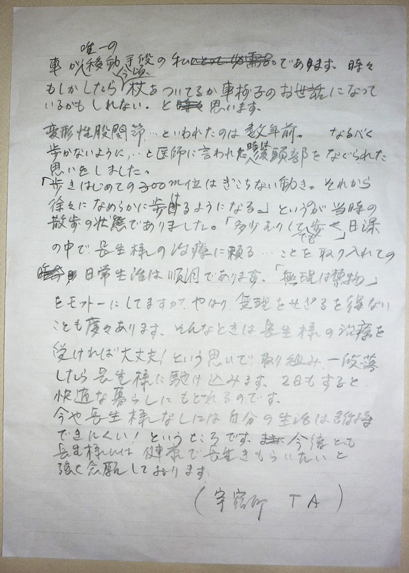 唯一の
車が移動手段の私であります。時々
もしかしたら今頃杖をついてるか車椅子のお世話になって
いるかもしれない。と思います。
変形性股関節…といわれたのは数年前。 なるべく
歩かないように,…と医師に言われた時後頭部をなぐられた
思いをしました。
「歩きはじめての200m位はぎこちない動き。それから
徐々になめらかに歩けるようになる」というが当時の
散歩の状態でありました。「多少むりして 日課
の中で長生様の治療に頼る…ことを取り入れての
日常生活は順調であります。「無理は禁物」
をモットーにしてますが、やはり無理をせざるを得ない
ことも度々あります。そんなときは長生様の治療を
受ければ大丈夫!という思いで取り組み一段落
したら長生様に駆け込みます。2日もすると
快適な暮らしにもどれるのです。
今や長生様なしには自分の生活は
できにくい!というところです。今後とも
長生様には健康で長生きもらいたいと
強く念願しております。
(宇宿町 TA)